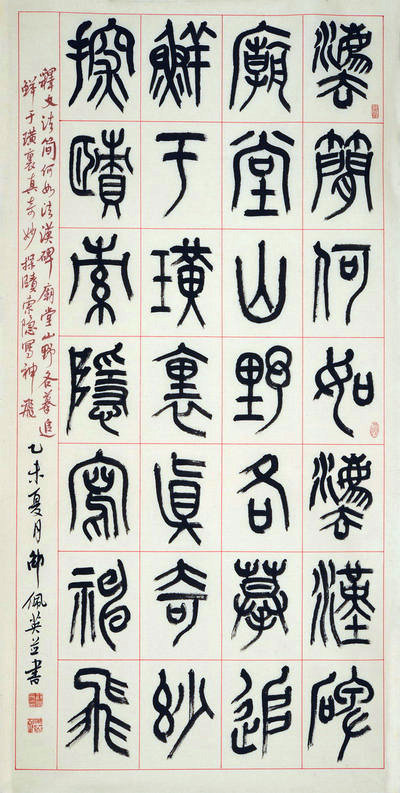 灋簡何如灋漢碑
廟堂山野各摹追
鮮于璜裏真奇妙
探賾索隱寫神飛
釋文法简何如法漢碑廟堂山野各摹追
鲜于璜裏真奇妙探賾索隱寫神飛
乙未夏月佩英並書